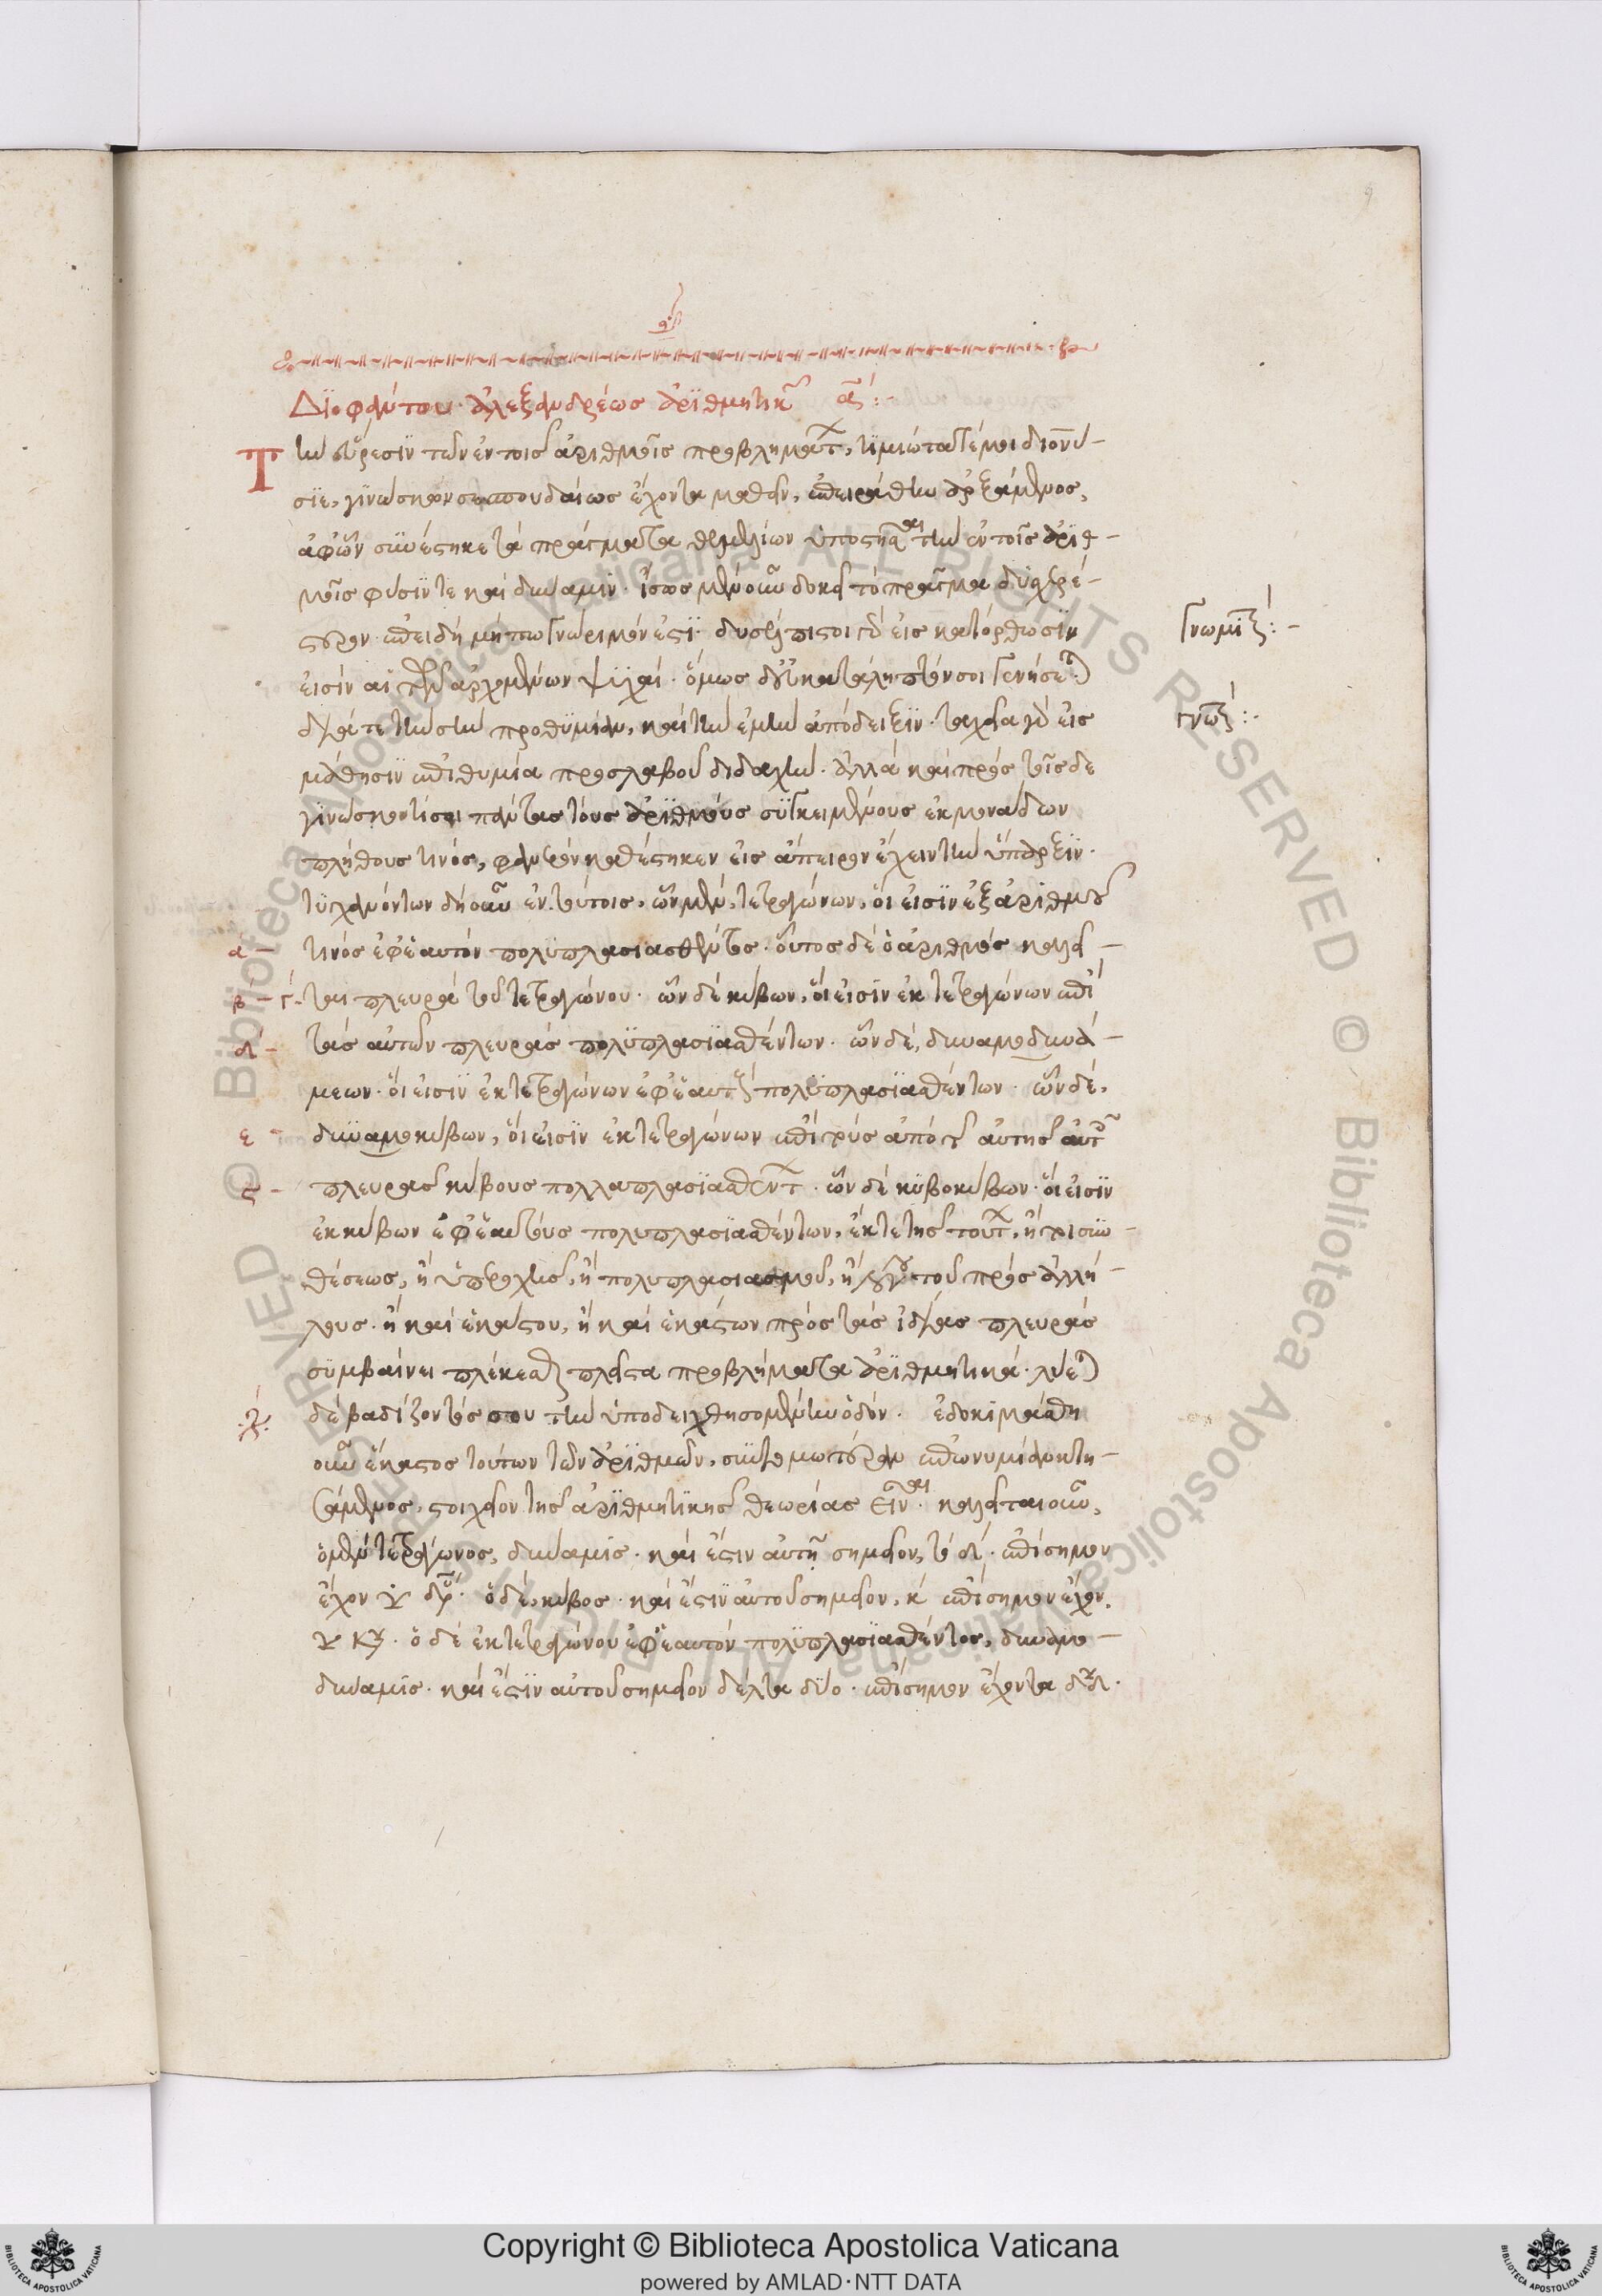 9
Διοφάντου ἀλεξανδρέως ἀριθμητικῶν α:-
Τὴν εὕρεσιν τῶν ἐν τοῖς ἀριθμοῖς προβλημάτων, τιμιώτατέ μοι διονύ-
σιε, γινώσκων σε σπουδαίως ἔχοντα μαθεῖν, ἐπειράθην ἀρξάμενος,
ἀφ' ὧν συνέστηκε τὰ πράγματα θεμελίων ὑποστῆσαι τὴν ἐν τοῖς ἀριθ-
μοῖς φύσιν τε καὶ δύναμιν. ἴσως μὲν οὖν δοκεῖ τὸ πρᾶγμα δυσχερέ-
στερον ἐπειδὴ μήπω γνώριμόν ἐστι. δυσέλπιστοι γὰρ εἰς κατόρθωσιν
Γνωμικόν:-
εἰσὶν αἱ τῶν ἀρχομένων ψυχαί. ὅμως δ' εὐκατάληπτόν σοι γενήσεται
διά τε τὴν σὴν προθυμίαν, καὶ τὴν ἐμὴν ἀπόδειξιν. ταχεῖα γὰρ εἰς
μάθησιν ἐπιθυμία προσλαβοῦσα διδαχήν. ἀλλὰ καὶ πρὸς τοῖσδε
γινώσκοντί σοι πάντας τοὺς ἀριθμοὺς συγκειμένους ἐκ μονάδων
πλήθους τινός, φανερὸν καθέστηκεν εἰς ἄπειρον ἔχειν τὴν ὕπαρξιν.
τυγχανόντων δὴ οὖν ἐν τούτοις, ὧν μὲν, τετραγώνων, οἵ εἰσιν ἐξ ἀριθμοῦ
α - τινὸς ἐφ' ἑαυτὸν πολυπλασιασθέντος. οὗτος δὲ ὁ ἀριθμὸς καλεῖ-
β - γ - ται πλευρὰ τοῦ τετραγώνου. ὧν δὲ κύβων, οἵ εἰσιν ἐκ τετραγώνων ἐπὶ
δ - τὰς αὐτῶν πλευρὰς πολυπλασιασθέντων. ὧν δέ, δυναμοδυνά-
μεων. οἵ εἰσιν ἐκ τετραγώνων ἐφ' ἑαυτοὺς πολυπλασιασθέντων. ὧν δέ,
ε - δυναμοκύβων, οἵ εἰσιν ἐκ τετραγώνων ἐπὶ τοὺς ἀπὸ τῆς αὐτῆς αὐτοῖς
ϛ - πλευρᾶς κύβους πολλαπλασιασθέντων. ὧν δὲ κυβοκύβων. οἵ εἰσιν
ἐκ κύβων ἐφ' ἑαυτοὺς πολυπλασιασθέντων, ἔκ τε τῆς τούτων, ἤτοι συν-
θέσεως, ἢ ὑπεροχῆς, ἢ πολυπλασιασμοῦ, ἢ λόγου τοῦ πρὸς ἀλλή-
λους. ἢ καὶ ἑκάστου, ἢ καὶ ἑκάστων πρὸς τὰς ἰδίας πλευρὰς
συμβαίνει πλέκεσθαι πλεῖστα προβλήματα ἀριθμητικά. λύεται
δὲ βαδίζοντός σου τὴν ὑποδειχθησομένην ὁδόν. ἐδοκιμάσθη
οὖν ἕκαστος τούτων τῶν ἀριθμῶν, συντομωτέραν ἐπωνυμίαν κτη-
σάμενος, στοιχεῖον τῆς ἀριθμητικῆς θεωρίας εἶναι. καλεῖται οὖν,
ὁ μὲν τετράγωνος, δύναμις. καὶ ἔστιν αὐτῆς σημεῖον, τὸ δ. ἐπίσημον
ἔχον Υ δῦ. ὁ δὲ, κύβος. καὶ ἔστιν αὐτοῦ σημεῖον, κ ἐπίσημον ἔχον
Υ κῦ. ὁ δὲ ἐκ τετραγώνου ἐφ' ἑαυτὸν πολυπλασιασθέντος, δυναμο-
δύναμις. καὶ ἔστιν αὐτοῦ σημεῖον δέλτα δύο. ἐπίσημον ἔχοντα δῦδ.
Copyright © Biblioteca Apostolica Vaticana
powered by AMLAD·NTT DATA